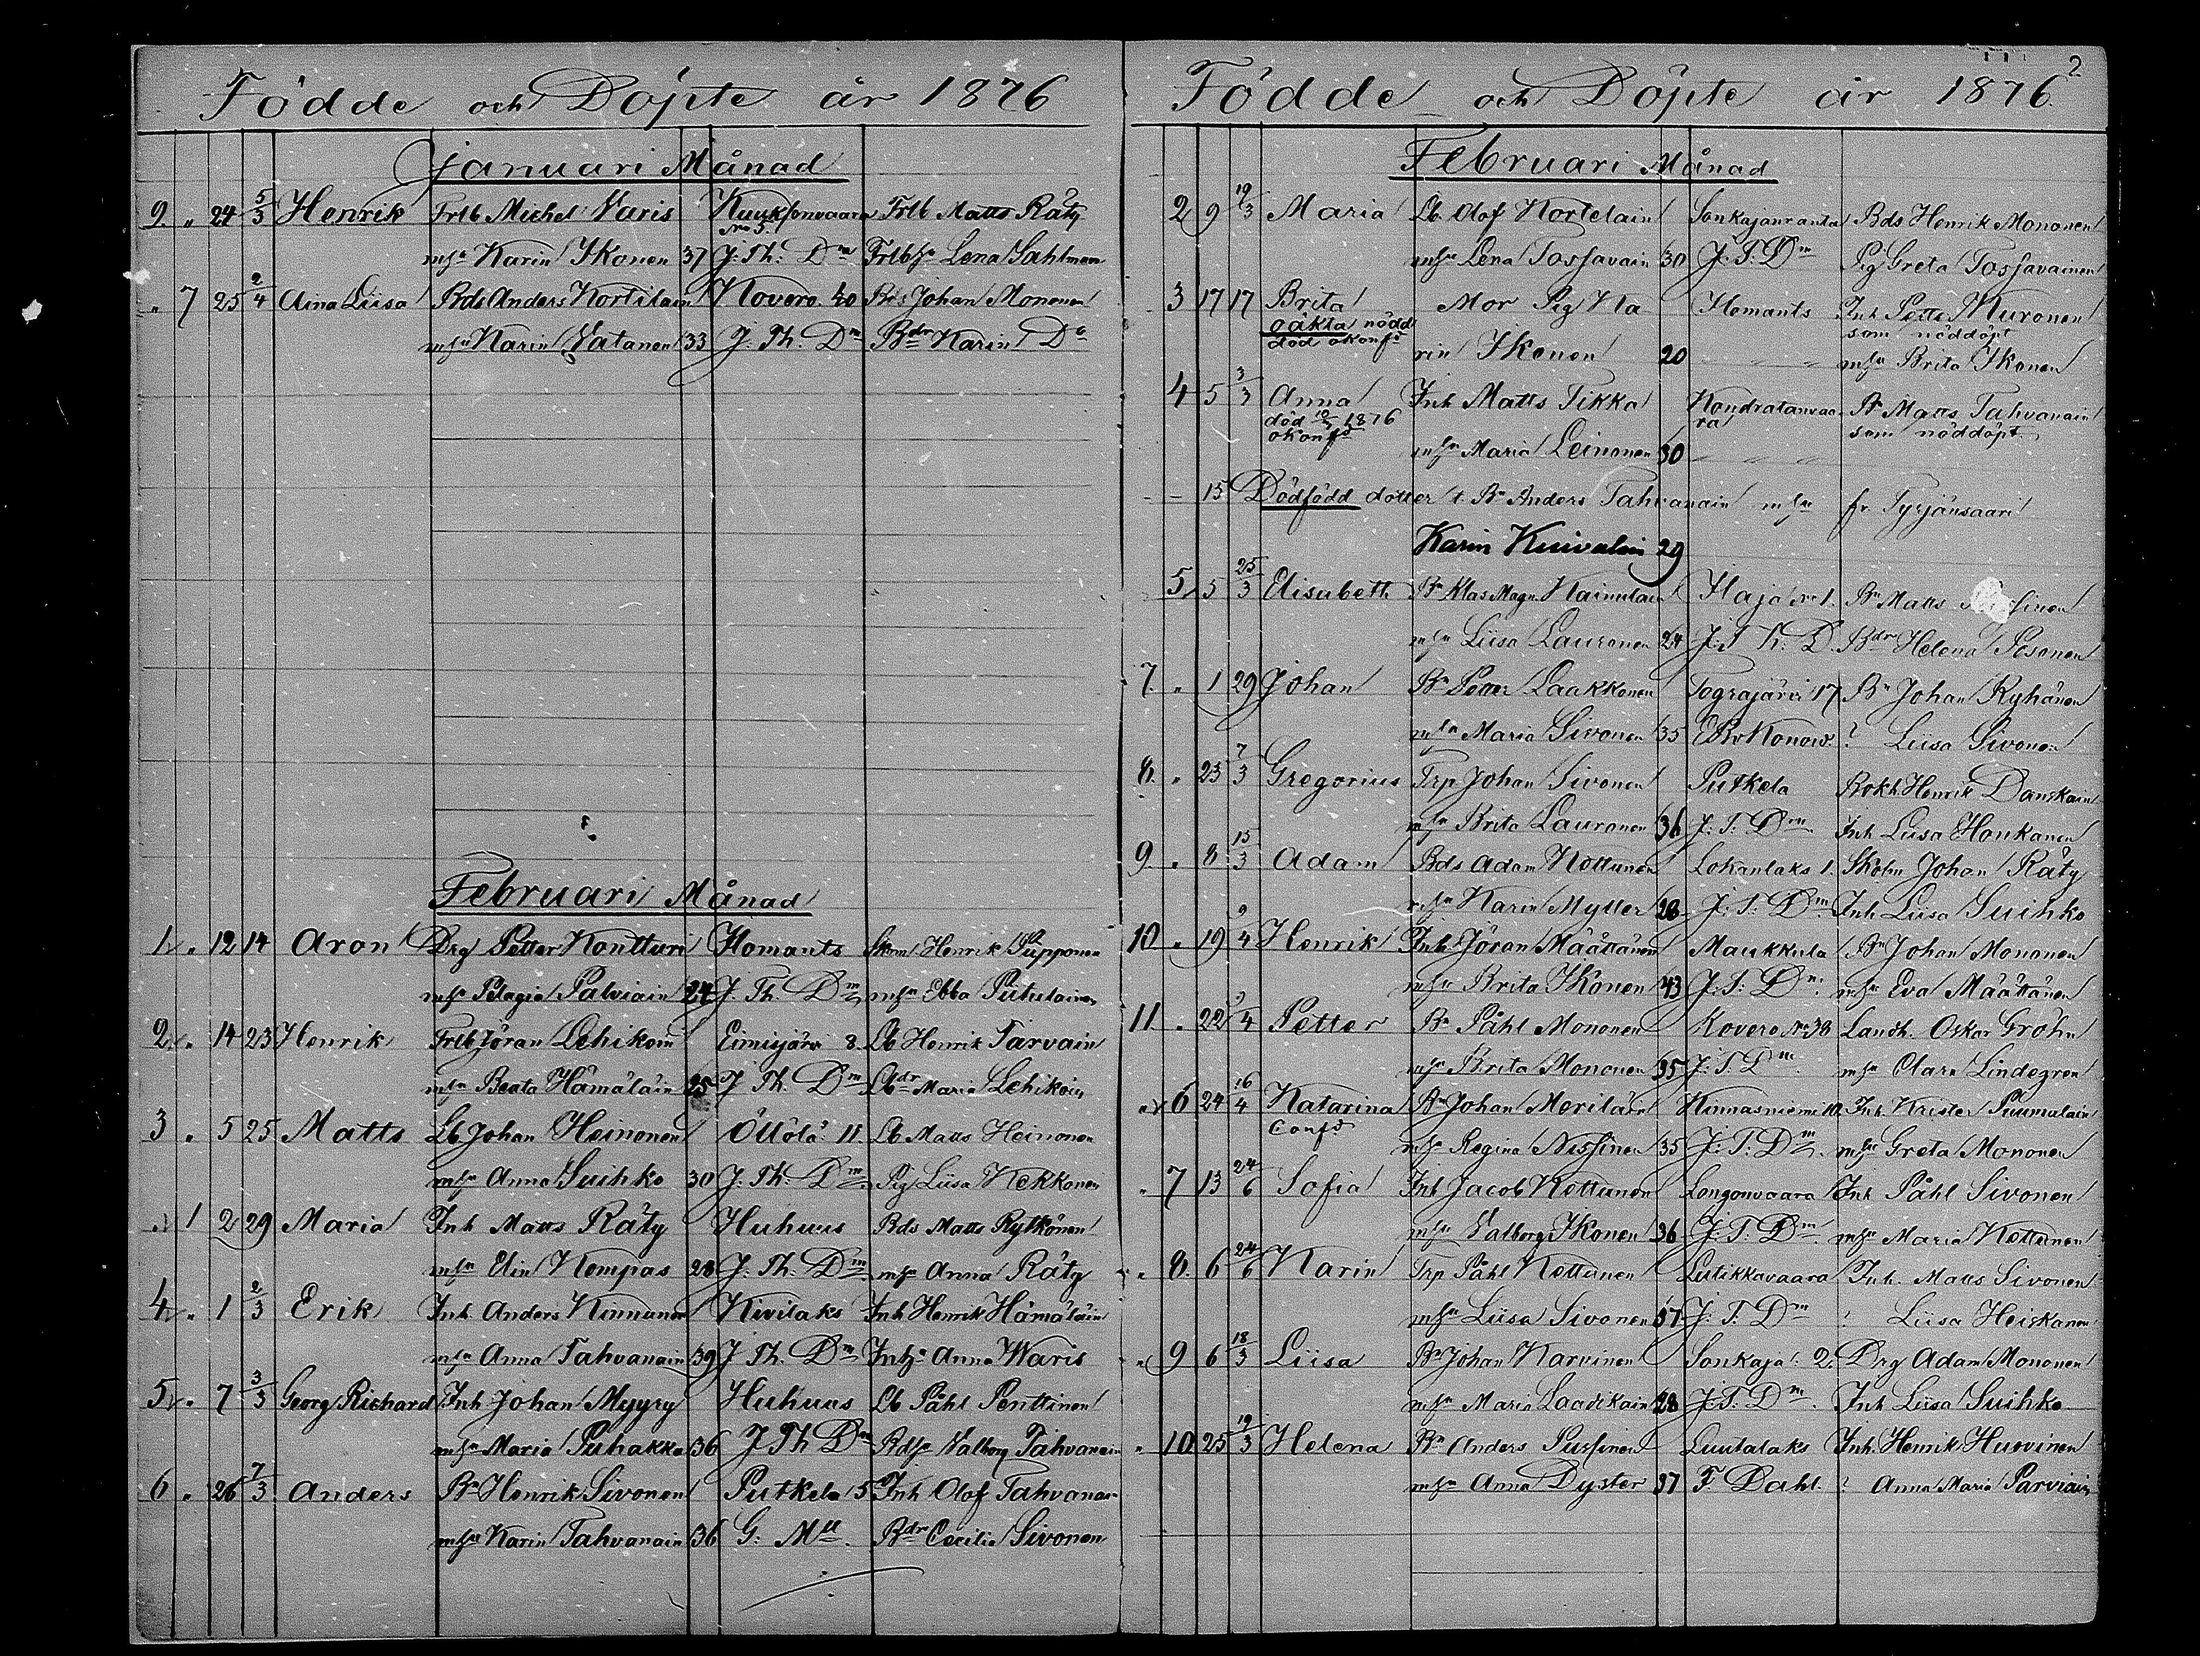 Födde och Döpte år 1876
Januari Månad
9. " 24 5/3 Henrik Frlb Michel Varis Kuuksonvaara No 5. Frlb Matts Räty
mhu Karin Ikonen 37 J. Th. Dm Frlbhu Lena Sahlman
" 7 25 2/4 Aina Liisa Bds Anders Kortelain Kovero 40 Bds Johan Mononen
mhu Karin Vatanen 33 J. Th. Dm Bdr Karin Do
Februari Månad
1 " 12 14 Aron Drg Petter Kontturi Ilomants Skom Henrik Piipponen
mhu Pelagia Palviain 24 J. Th. Dm mhu Ebba Piitulainen
2 " 14 23 Henrik Frlb Jöran Lehikoin Eimisjärvi 8. Lb Henrik Tarvain
mhu Beata Hämäläin 25 J Th Dm Lbdr Maria Lehikoin
3 " 5 25 Matts Lb Johan Heinonen Öllölä 11. Lb Matts Heinonen
mhu Anna Suihko 30 J. Th. Dm Pig Liisa Kekkonen
" 1 2 29 Maria Inh Matts Räty Huhuus Bds Matts Rytkönen
mhu Elin Kompas 28 J. Th. Dm mhu Anna Räty
4 " 1 2/3 Erik Inh Anders Kinnunen Kivilaks Inh Henrik Hämäläin
mhu Anna Tahvanain 39 J Th. Dm Inhhu Anna Waris
5 " 7 3/3 Georg Richard Inh Johan Myyry Huhuus Lb Påhl Penttinen
mhu Maria Puhakka 36 J Th Dm Bdshu Valborg Tahvanain
6 " 26 7/3 Anders Bn Henrik Sivonen Putkela 5 Inh Olof Tahvanain
mhu Karin Tahvanain 36 G. Bdr Cecilia Sivonen
2
Födde och Döpte år 1876.
Februari Månad
2 9 19/3 Maria Lb. Olof Kortelain Sonkajanranta Bds Henrik Mononen
mhu Lena Tossavain 30 J. T. Dm Pig Greta Tossavainen
3 17 17 Brita Mor Pig Ka Ilomants Inh Petter Muronen
oäkta nödd som nöddöpt
död okonfd rin Ikonen 20 " " " mhu Brita Ikonen
4 5 3/3 Anna Inh Matts Tikka Kondratanvaa Bn Matts Tahvanain
död 1876 ra som nöddöpt
okonfd mhu Maria Leinonen 30 " " "
- - 15 Dödfödd dotter t. Bn Anders Tahvanain mhu fr Tyrjänsaari
Karin Kuivalain 29
5 5 25/3 Elisabeth Bn Klas Magn. Kainulain Haja No 1. Bn Matts
mhu Liisa Lauronen 24 J. T. D. Bdr Helena Pesonen
7. " 1 29 Johan Bn Petter Laakkonen Tograjärvi 17 Bn Johan Ryhänen
mhu Maria Sivonen 35 ? Liisa Sivonen
8. " 23 7/3 Gregorius Trp Johan Sivonen Putkela Bokh Henrik Danskain
mhu Brita Lauronen 36 J. T. Dm. Inh Liisa Honkanen
9. " 8 15/3 Adam Bds Adam Kettunen Lokanlaks 1. Johan Räty
mhu Karin Mytter 28 J. T. Dm. Inh Liisa Suihko
10 " 19 9/4 Henrik Inh Jöran Määttänen Maukkula Bn Johan Mononen
mhu Brita Ikonen 43 J. T. Dm. mhu Eva Määttänen
11 " 22 9/4 Petter Bn Påhl Mononen Kovero No 38 Landh. Oskar Gröhn
mhu Brita Mononen 35 J. T. Dm. mhu Clara Lindegren
" 6 24 16/4 Katarina Bn Johan Meriläin Kinnasniemi 10. Inh Krister Puumalain
Confd mhu Regina Nissinen 35 J. T. Dm. mhu Greta Mononen
" 7 13 24/6 Sofia Inh Jacob Kettunen Longonvaara Inh Påhl Sivonen
mhu Valborg Ikonen 36 J. T. Dm. mhu Maria Kettunen
" 8. 6 24/6 Karin Trp Påhl Kettunen Lutikkavaara Inh. Matts Sivonen
mhu Liisa Sivonen 37 J. T. Dm ? Liisa Heiskanen
" 9 6 18/3 Liisa Bn Johan Karvinen Sonkaja 2. Drg Adam Mononen
mhu Maria Laatikain 28 J. T. Dm. Inh Liisa Suihko
" 10 25 19/3 Helena Bn Anders Pussinen Luutalaks Inh. Henrik Hurvinen
mhu Anna Dyster 37 F. Dahl. ? Anna Maria Parviain